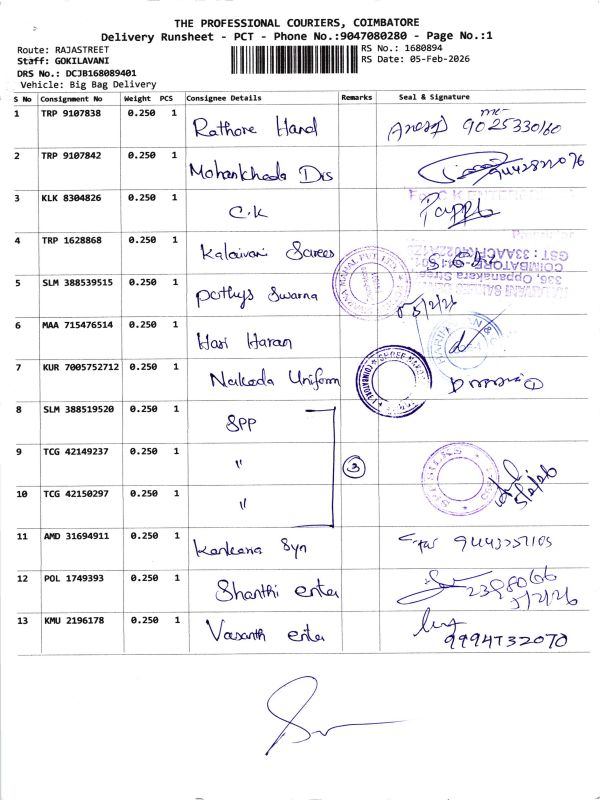 THE PROFESSIONAL COURIERS, COIMBATORE
Delivery Runsheet - PCT - Phone No.:9047080280 - Page No.:1
Route: RAJASTREET
Staff: GOKILAVANI
DRS No.: DCJB168089401
Vehicle: Big Bag Delivery
RS No.: 1680894
RS Date: 05-Feb-2026
S No Consignment No Weight PCS Consignee Details Remarks Seal & Signature
1 TRP 9107838 0.250 1 Rathore Hand 9025330160
2 TRP 9107842 0.250 1 Mohankhada Drs
3 KLK 8304826 0.250 1 C.K
4 TRP 1628868 0.250 1 Kalaivani Sarees
336, Oppanakara Street
COIMBATORE
5 SLM 388539515 0.250 1 Pothys Swarna
6 MAA 715476514 0.250 1 Hari Haran
7 KUR 7005752712 0.250 1 Nakoda Uniform
8 SLM 388519520 0.250 1 SPP
9 TCG 42149237 0.250 1 " 3
10 TCG 42150297 0.250 1 "
5/2/26
11 AMD 31694911 0.250 1 Syn
12 POL 1749393 0.250 1 Shanthi enter 2398066
5/2/26
13 KMU 2196178 0.250 1 Vasanth enter
9994732070